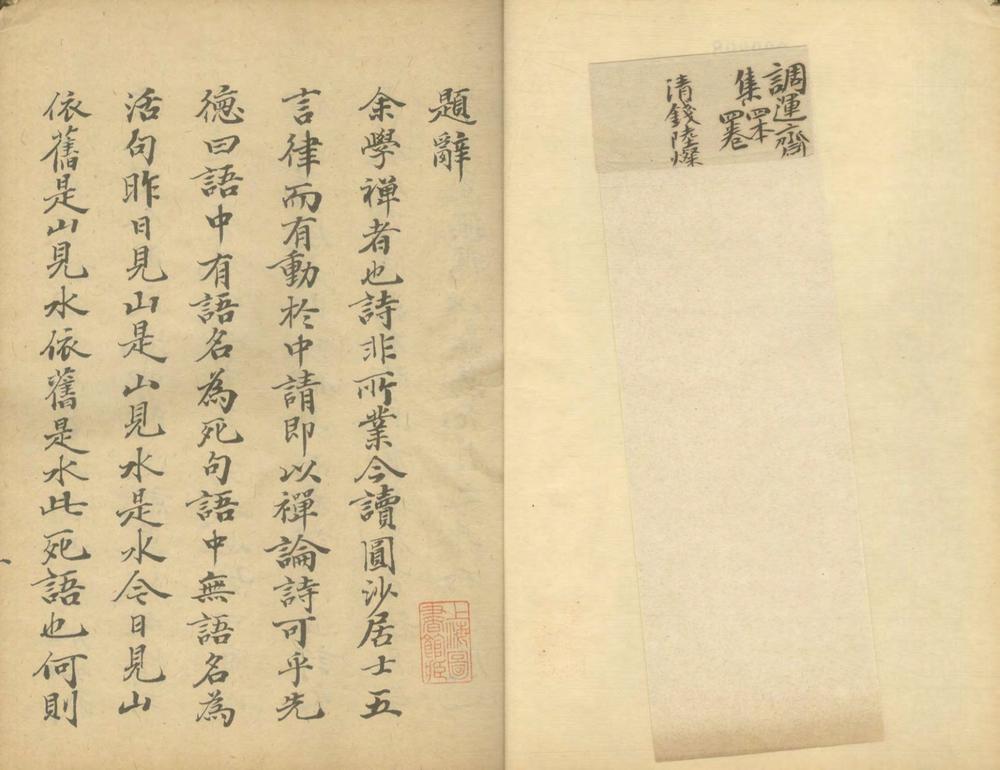 調運齋
集四本
四卷
清錢陸燦
題辭
余學禅者也詩非所業今讀圓沙居士五
言律而有動於中請即以禪論詩可乎先
德曰語中有語名為死句語中無語名為
活句昨日見山是山見水是水今日見山
依舊是山見水依舊是水此死語也何則
上海圖
書館藏